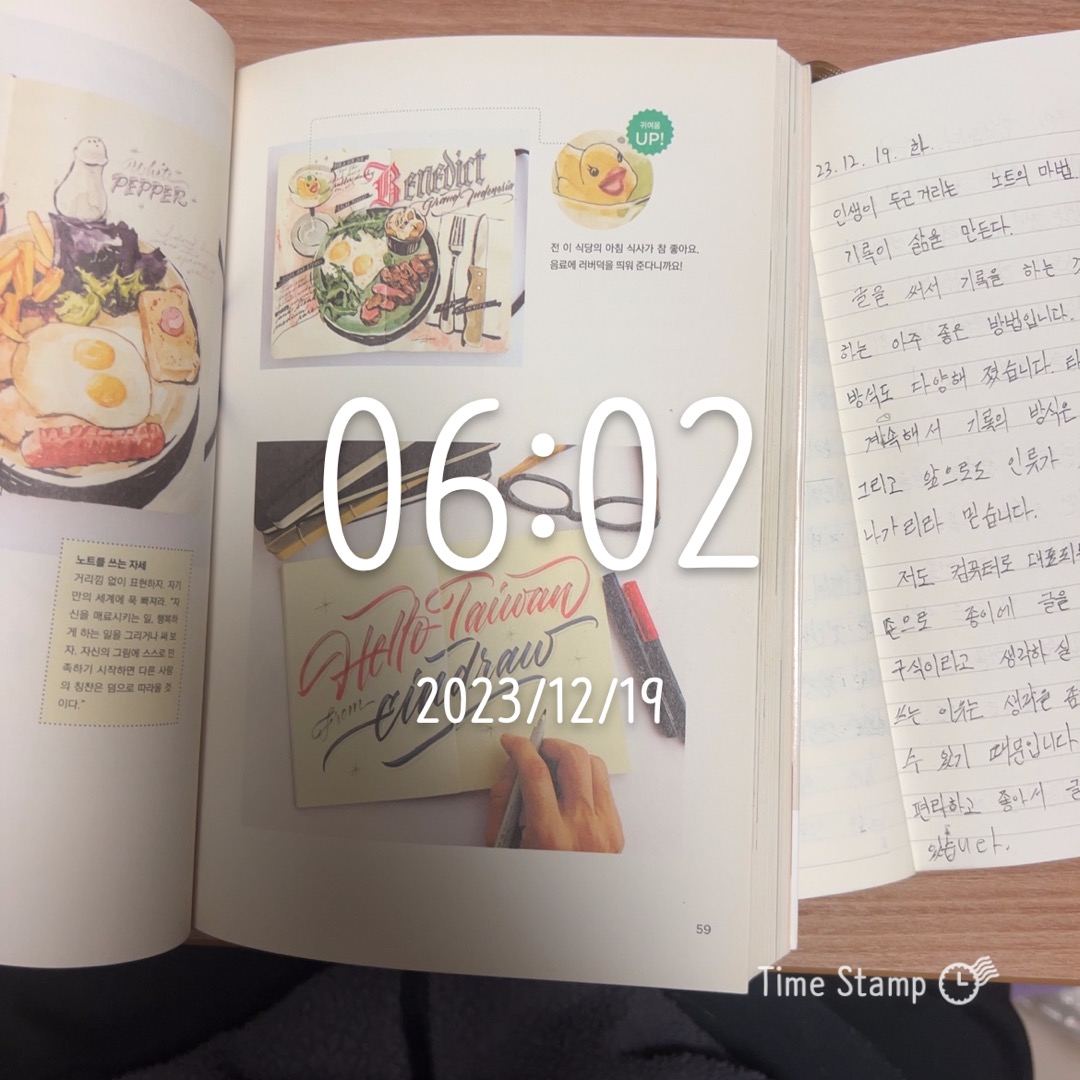 White
PEPPER
노트를 쓰는 자세
거리낌 없이 표현하자. 자기
만의 세계에 푹 빠져라. “자
신을 매료시키는 일, 행복하
게 하는 일을 그리거나 써 보
자. 자신의 그림에 스스로 만
족하기 시작하면 다른 사람
의 칭찬은 덤으로 따라올 것
이다.”
Benedict
Grand Indonesia
귀여움
UP!
전 이 식당의 아침 식사가 참 좋아요.
음료에 러버덕을 띄워 준다니까요!
06:02
Hello Taiwan
from
2023/12/19
59
23. 12. 19. 화.
인생이 두근거리는 노트의 마법
기록이 삶을 만든다.
글을 써서 기록을 하는
하는 아주 좋은 방법입니다.
방식도 다양해 졌습니다.
계속해서 기록의 방식은
그리고 앞으로도 인류가
나가리라 믿습니다.
저도 컴퓨터로
손으로 종이에 글을
구식이라고 생각하실
쓰는 이유는 생각을 좀
수 있기 때문입니다
편리하고 좋아서
있습니다.
Time Stamp